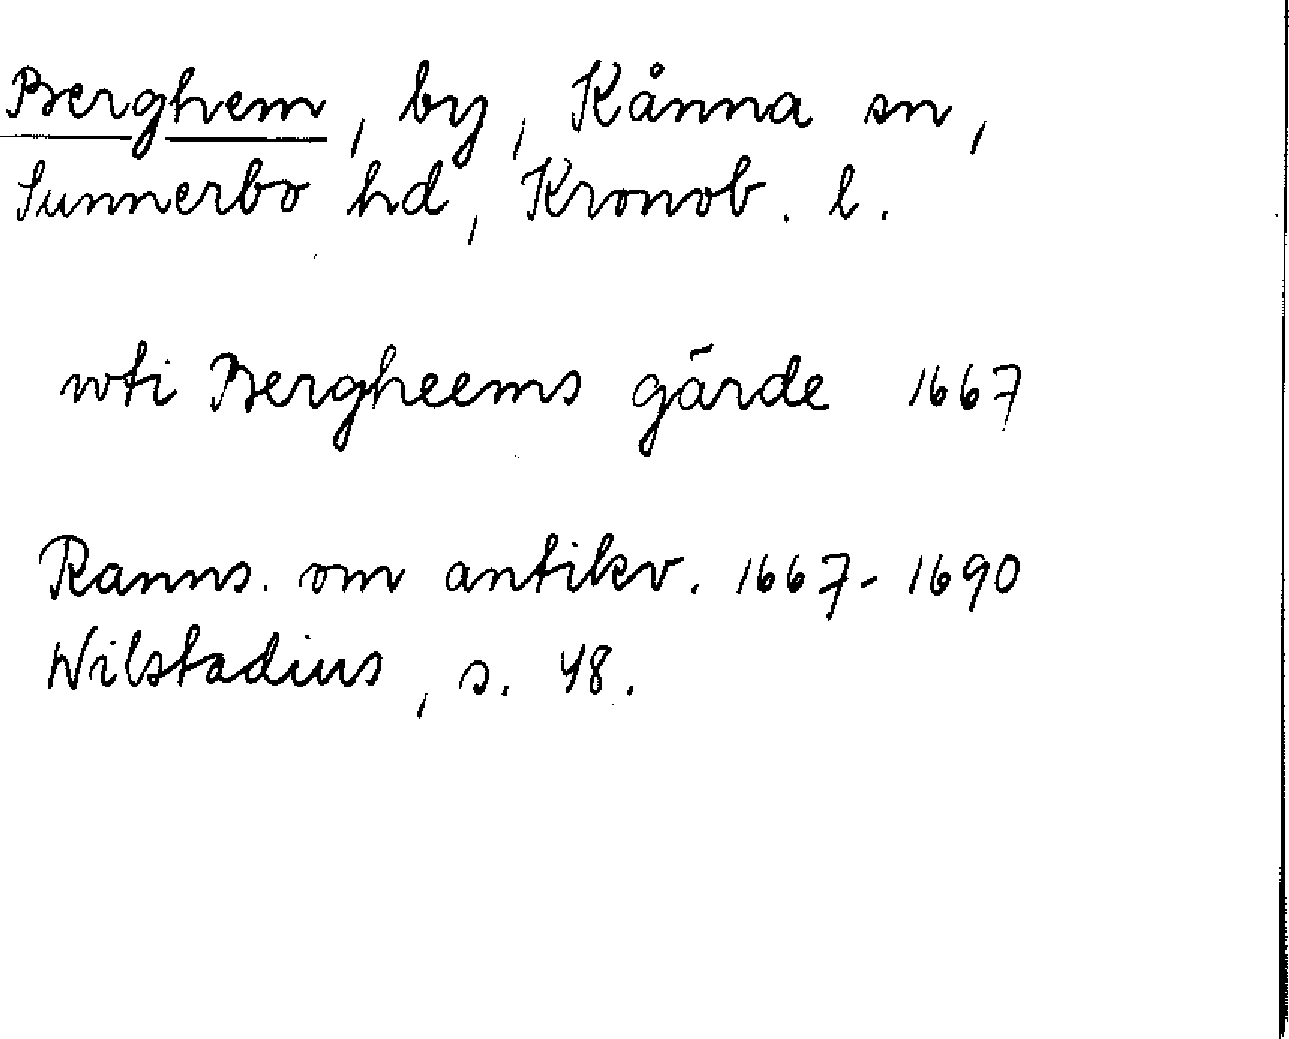 Berghem, by, Kånna sn,
Sunnerbo hd, Kronob. l.
wti Bergheems gärde 1667
Ranns. om antikv. 1667-1690
Wilstadius, s. 48.